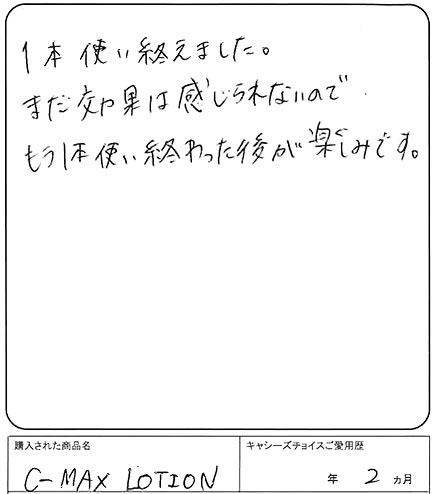 1本使い終えました。
まだ効果は感じられないので
もう1本使い終わった後が楽しみです。
購入された商品名
キャシーズチョイスご愛用歴
C-MAX LOTION
年 2 ヵ月